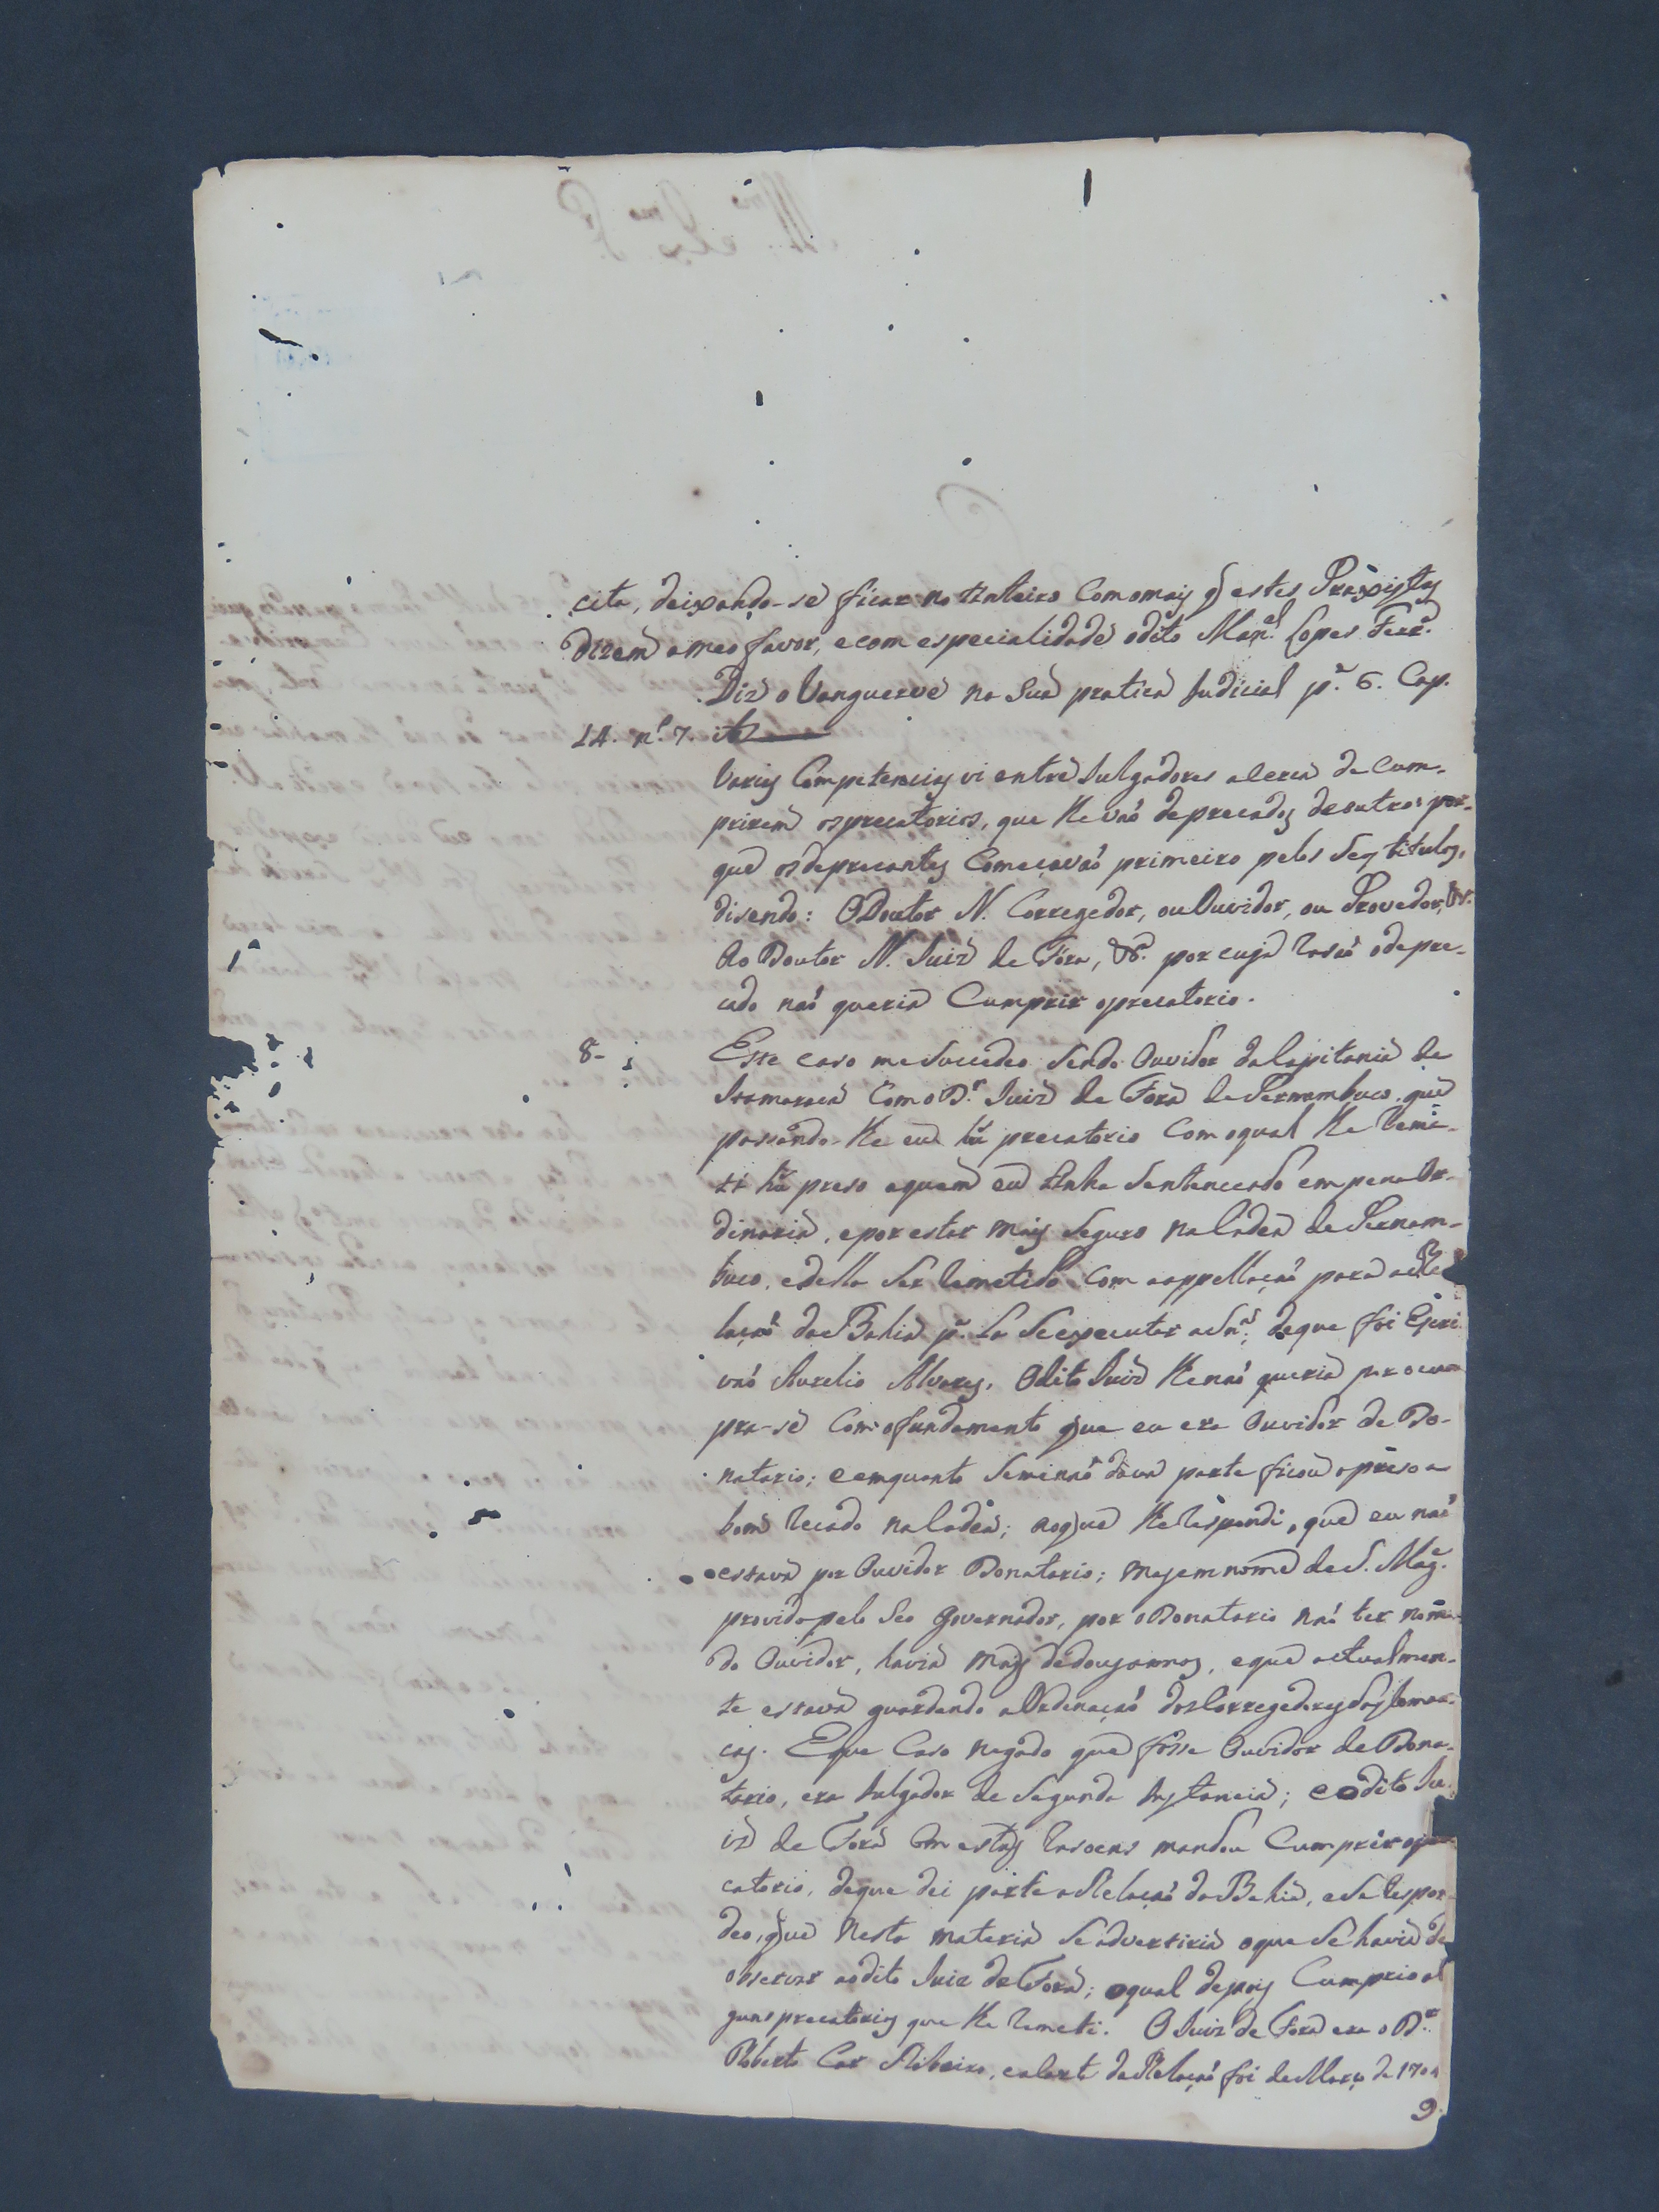 cita, deixando-se ficar no tinteiro Com o mais q̃ estes Praxistas
dizem a meo favor, e com especialidade o dito Man.el Lopes Ferr.ª
Diz o Vanguerve na Sua pratica Judicial p.e 6. Cap.
14. n.º 7. ibi
Varias Competencias vi entre Julgadores acerca de Cum-
prirem os precatorios, que lhe vaõ deprecados de outros por-
que os deprecantes Começavaõ primeiro pelos Seos titulos,
disendo: O Doutor N. Corregedor, ou Ouvidor, ou Provedor, &ª.
Ao Doutor N. Juiz de Fora, &ª. por cuja rasaõ o depre-
cado naõ queria Cumprir o precatorio.
8- Este caso me Succedeo Sendo Ouvidor da Capitania de
Itamaraca Com o D.r Juiz de Fora de Pernambuco, que
passando-lhe eu hũ precatorio Com o qual lhe reme-
ti hũ preso a quem eu tinha Sentenceado em pena Or-
dinaria, e por estar mais Seguro na Cadea de Pernam-
buco, e della Ser remetido Com a appellaçaõ para a Re
laçaõ da Bahia p.ª La Se executar a Sn.ça, de que foi Escri
vaõ Aurelio Alvares, O dito Juiz lhe naõ queria por o cum
pra-se Com o fundamento que eu era Ouvidor de Do-
natario; e em quanto Se me naõ dava parte ficou o preso a
bom recado na Cadea; ao que lhe respondi, que eu naõ
estava por Ouvidor Donatario; mas em nome de S. Mag.e
provido pelo Seo Governador, por o Donatario naõ ter nomea-
do Ouvidor, havia mais de dous annos, e que actualmen-
te estava guardando a Ordenaçaõ dos Corregedores das Comar-
cas. E que Caso negado que fosse Ouvidor de Dona-
tario, era Julgador de Segunda Instancia; e o dito Ju-
iz de Fora Com estas rasoens mandou Cumprir o pre
catorio, de que dei parte a Relaçaõ da Bahia, e Se respon
deo, que nesta materia Se advertiria o que Se havia de
observar ao dito Juiz de Fora; o qual depois Cumprio al
guns precatorios que lhe remeti. O Juiz de Fora era o D.or
Roberto Car Ribeiro, e a Carta da Relaçaõ foi de Março de 1704
9.